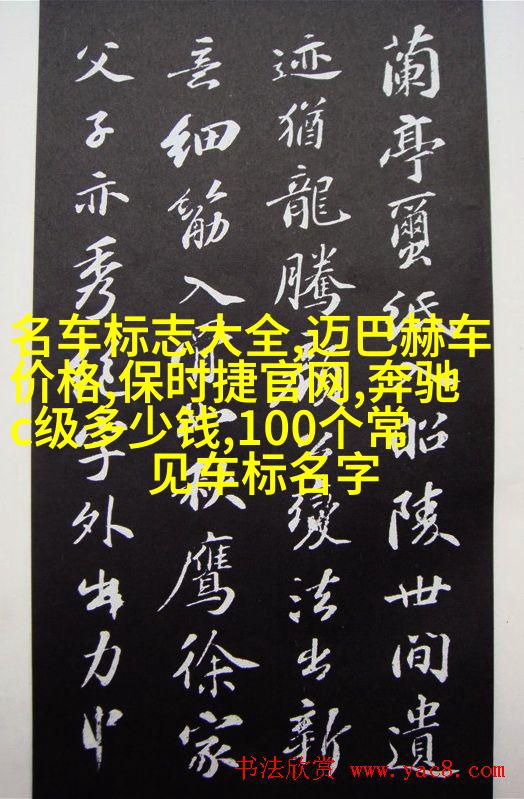 蘭亭蠒紙昭陵世間遺
迹猶龍騰變法出新
意細筋入秋鷹徐家
父子亦秀字外出力中
名车标志大全,迈巴赫车
价格,保时捷官网,奔驰
c级多少钱,100个常
见车标名字
书法欣赏 www.yac8.com